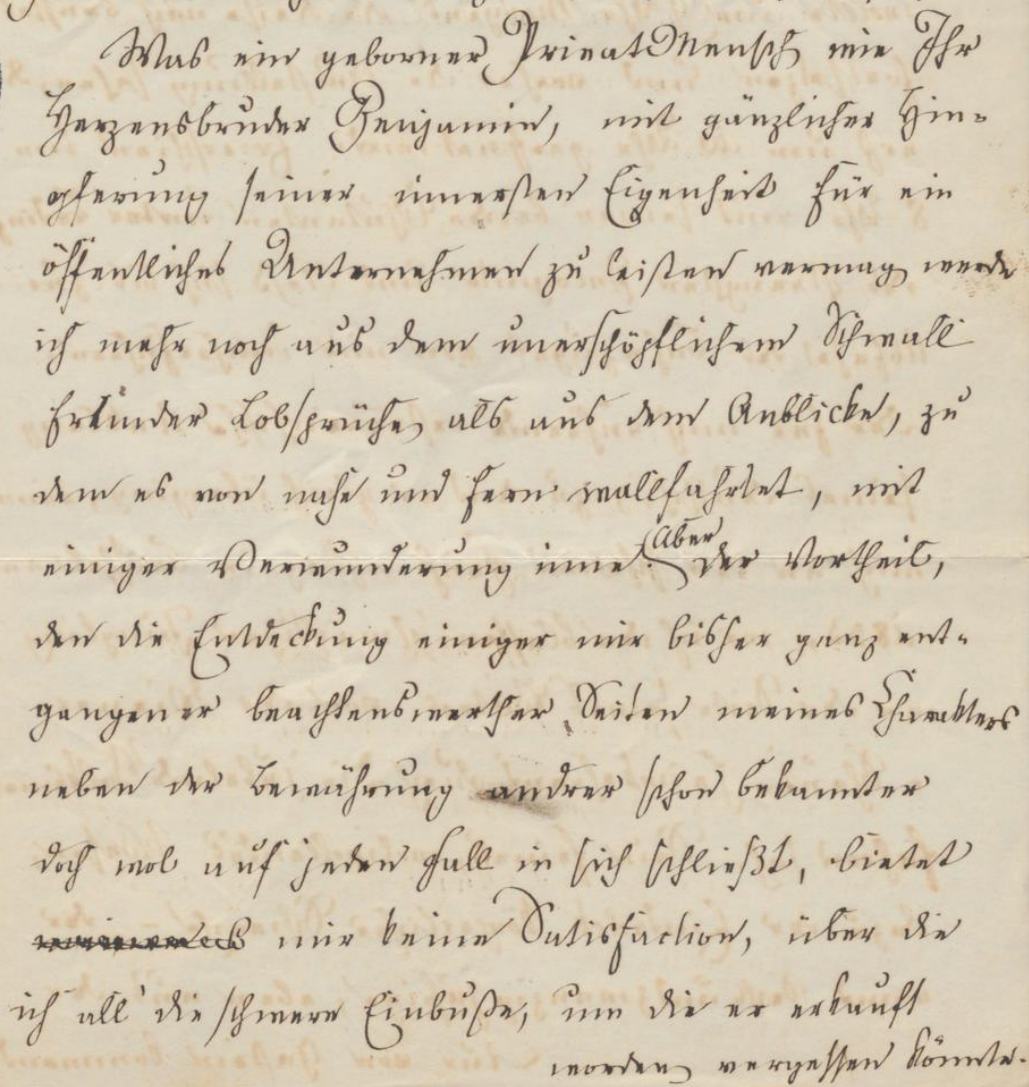 Was ein geborner PrivatMensch wie Ihr
Herzensbruder Benjamin, mit gänzlicher Hin-
opferung seiner innersten Eigenheit für ein
öffentliches Unternehmen zu leisten vermag werde
ich mehr noch aus dem unerschöpflichem Schwall
fremder Lobsprüche als aus dem Anblicke, zu
dem es von nahe und fern wallfahrtet, mit
einiger Verwunderung inne. Aber der Vortheil,
den die Entdeckung einiger mir bisher ganz ent-
gangener beachtenswerther Seiten meines Charakters
neben der Bewährung andrer schon bekannter
doch wol auf jeden Fall in sich schließt, bietet
mir keine Satisfaction, über die
ich all' die schwere Einbuße, um die er erkauft
worden vergessen könnte.